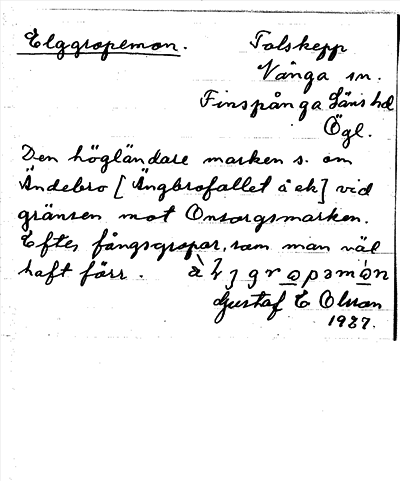 Elggropemon. Tolskepp
Vånga sn.
Finspånga Läns hd
Ögl.
Den högländare marken s. om
Ändebro [Ängbrofallet å ek] vid
gränsen mot Onsorgsmarken.
Efter fångsgropar, som man väl
haft förr.
Gustaf E Olsson
1937.